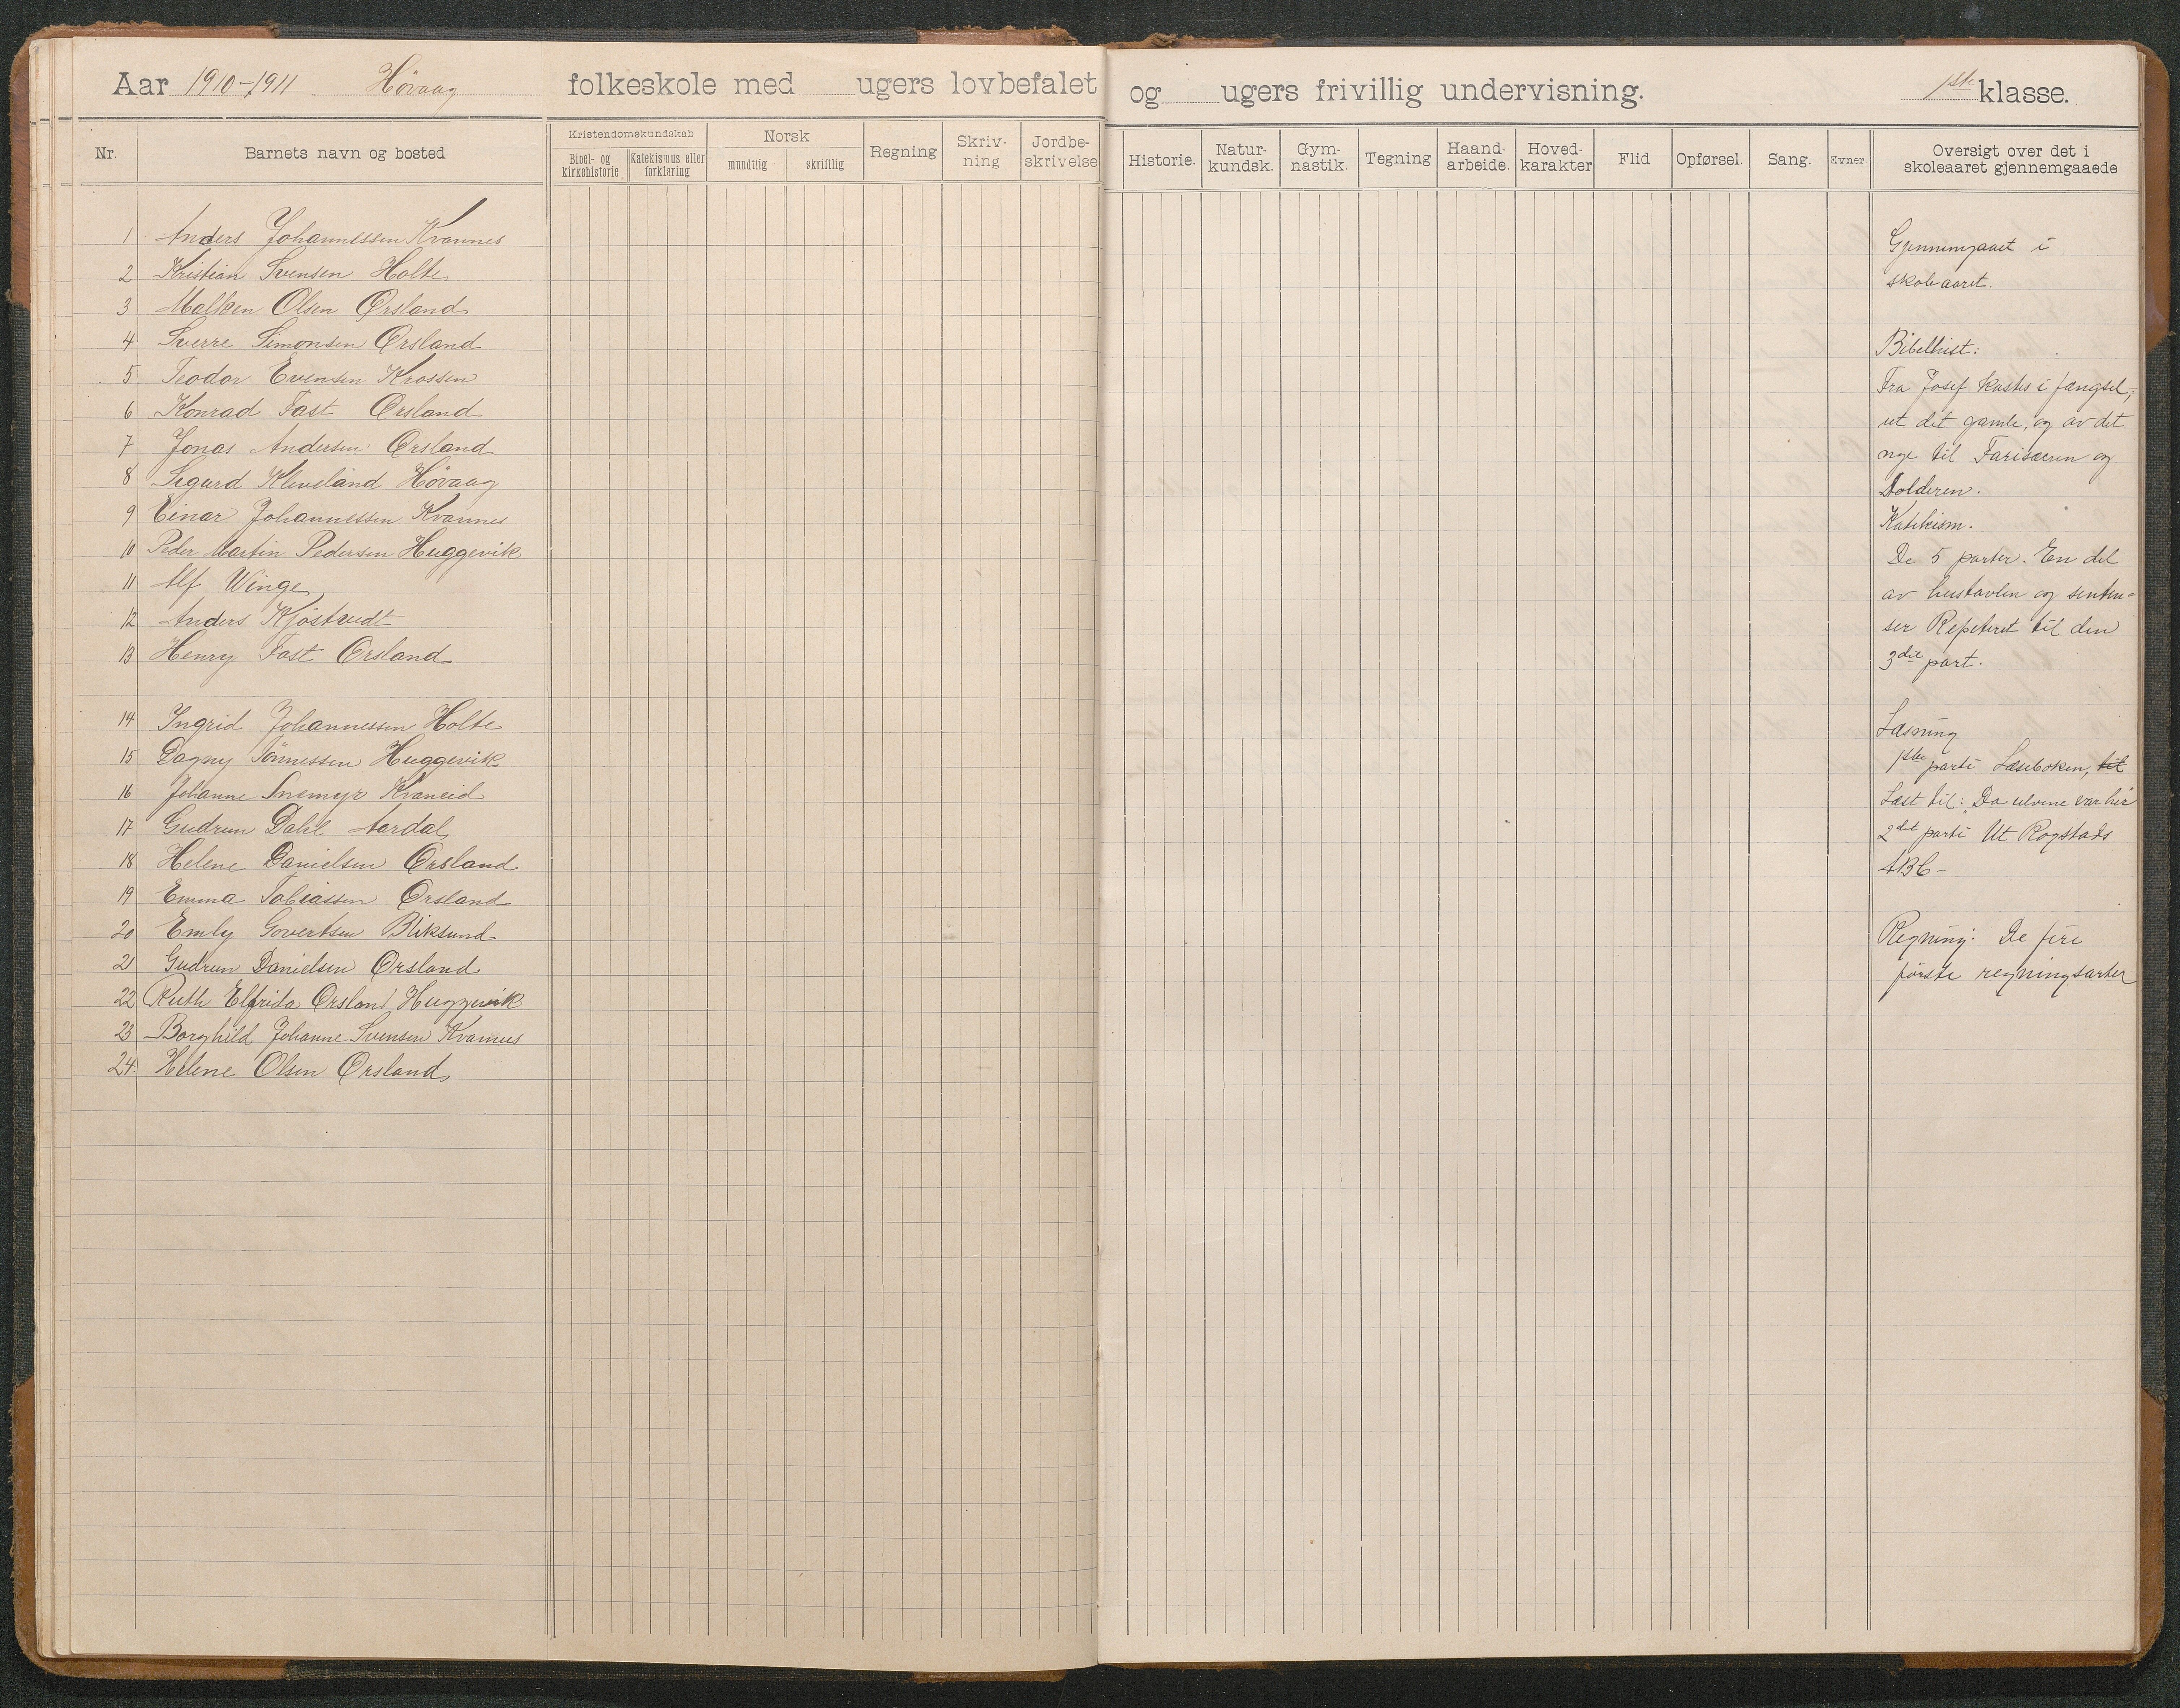 Aar 1910-1911 Høvaag folkeskole med ugers lovbefalet og ugers frivillig undervisning. 1ste klasse.
Nr. Barnets navn og bosted
Kristendomskundskab
Bibel- og kirkehistorie
Katekismus eller forklaring
Norsk
mundtlig
skriftlig
Regning
Skriv-
ning
Jordbe-
skrivelse
Historie.
Natur-
kundsk.
Gym-
nastik.
Tegning
Haand-
arbeide.
Hoved-
karakter
Flid
Opførsel.
Sang.
Evner
Oversigt over det i
skoleaaret gjennemgaaede
1 Anders Johannessen Kvannes
2 Kristian Svensen Holte
3 Olsen Ørsland
4 Sverre Simonsen Ørsland
5 Teodor Evensen Krossen
6 Konrad Fast Ørsland
7 Jonas Andersen Ørsland
8 Sigurd Kleveland Høvaag
9 Einar Johannessen Kvannes
10 Peder Martin Pedersen Huggevik
11 Alf Winge
12 Anders Kjøstvedt
13 Henry Fast Ørsland
14 Ingrid Johannessen Holte
15 Dagny Tønnessen Huggevik
16 Johanne Snemyr Kvaneid
17 Gudrun Dahl Aardal
18 Helene Danielsen Ørsland
19 Emma Tobiassen Ørsland
20 Emly Govertsen Bliksund
21 Gudrun Danielsen Ørsland
22 Ruth Elfrida Ørsland Huggevik
23 Borghild Johanne Svensen Kvannes
24. Helene Olsen Ørsland
Gjennemgaaet i
skoleaaret.
Bibelhist:
Fra Josef kastes i fængsel,
ut det gamle, og av det
nye til Farisæeren og
tolderen.
Katekism.
De 5 parter. En del
av hustavlen og senten-
ser Repeteret til den
3die part.
Læsning
1ste parti Læseboken, til
Læst til: "Da ulvene var her"
2det parti Ut Rogstads
ABC -
Regning: De fire
første regningsarter